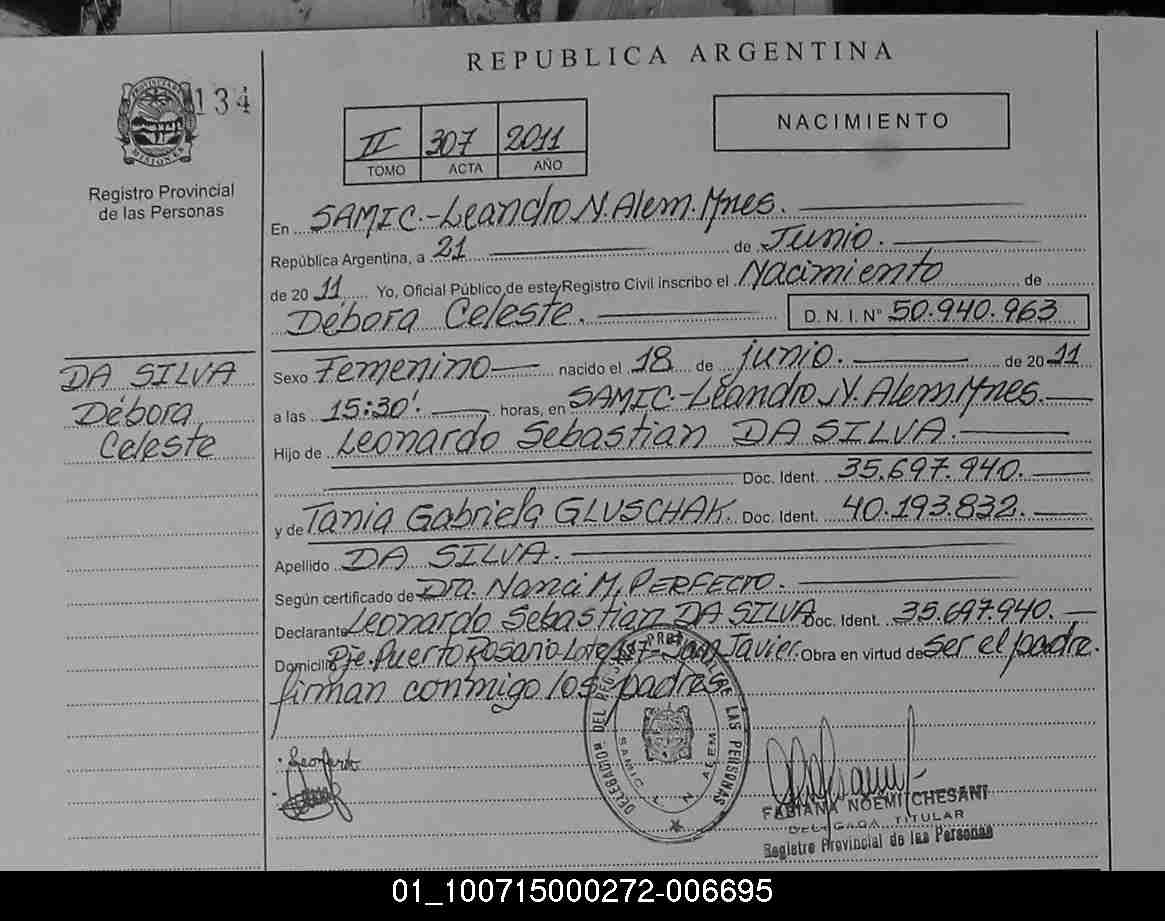 REPUBLICA ARGENTINA
134
PROVINCIA DE MISIONES
Registro Provincial
de las Personas
II 307 2011
TOMO ACTA AÑO
NACIMIENTO
En SAMIC.-Leandro N. Alem. Mnes.
República Argentina, a 21 de Junio.
de 2011 Yo, Oficial Público de este Registro Civil inscribo el Nacimiento de
Débora Celeste. D. N. I. N° 50.940.963
DA SILVA
Débora
Celeste
Sexo Femenino nacido el 18 de junio. de 2011
a las 15:30'. horas, en SAMIC-Leandro N. Alem. Mnes.
Hijo de Leonardo Sebastian DA SILVA.
Doc. Ident. 35.697.940.
y de Tania Gabriela GLUSCHAK. Doc. Ident. 40.193.832.
Apellido DA SILVA.
Según certificado de Dra. Nanci M. PERFECTO.
Declarante Leonardo Sebastian DA SILVA Doc. Ident. 35.697.940.
Domicilio Pje. Puerto Rosario Lote 187-San Javier. Obra en virtud de ser el padre.
firman conmigo los padres
DE LAS PERSONAS
SAMIC L N ALEM
FABIANA NOEMI CHESANI
DELEGADA TITULAR
Registro Provincial de las Personas
01_100715000272-006695